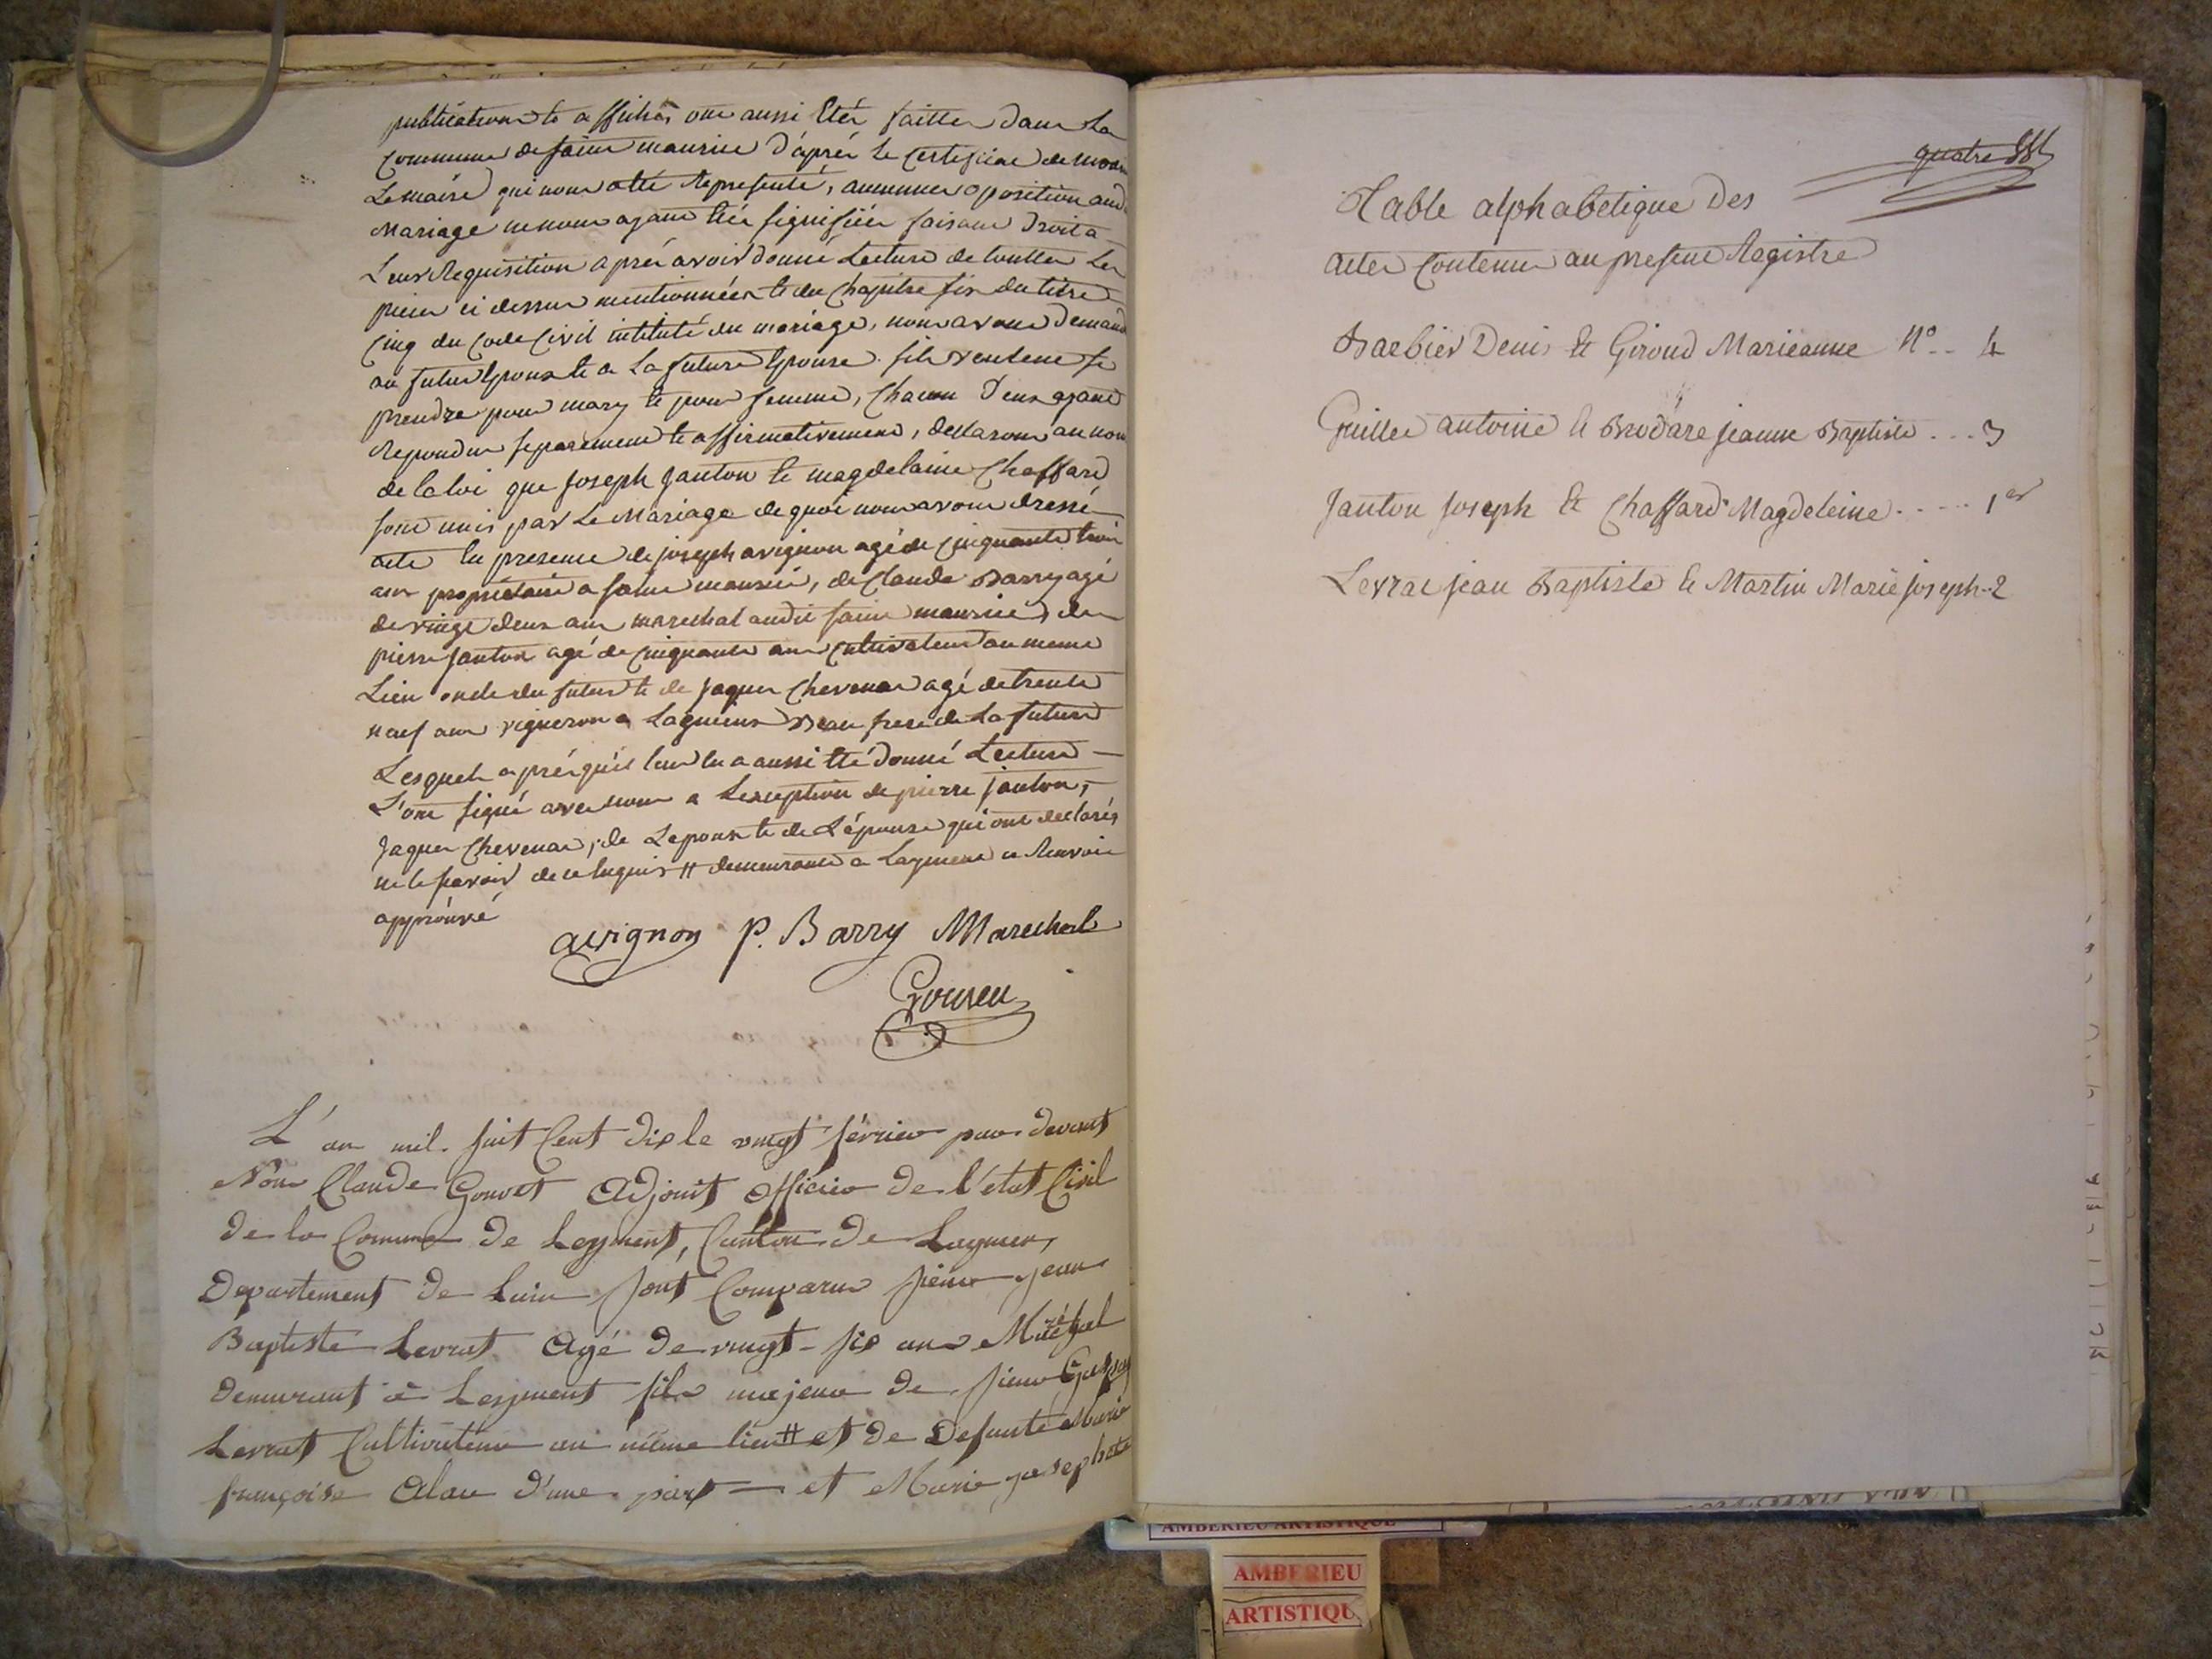 publications et affiches ont aussi étés faittes dans la
commune de saint maurice d'aprés le certificat de
Le maire qui nous a été representé, aucunnes oposition audit
Mariage ne nous ayant étés signifiées faisant droit a
Leurs Requisition aprés avoir donné Lecture de touttes Les
pieces ci dessus mentionnées et du Chapitre six du titre
Cinq du Code Civil intitulé du mariage, nous avons demandé
au futur Epoux et a La future Epouse sils veulent se
prendre pour mary et pour femme, Chacun d'eux ayant
Repondu separement et affirmativement, declarons au nom
de la loi que Joseph Janton et magdelaine Chaffard
sont unis par Le Mariage de quoi nous avons dressé
acte En presence de joseph avignon agé de Cinquante trois
ans propriétaire a saint maurice, de Claude Barry agé
de vingt deux ans marechal audit saint maurice, de
pierre Janton agé de Cinquante ans Cultivateur au meme
Lieu oncle du futur et de Jaques Chevenar agé de trente
neuf ans vigneron a Lagnieux Beau frere de La future
Lesquels aprés qu'il leur en a aussi été donné Lecture
L'ont signé avec nous a Lexception de pierre janton,
Jaques Chevenar, de Lepoux et de L'épouse qui ont declarés
ne le savoir de ce Enquis # demeurante a Leyment ce Renvoi
approuvé
avignon P. Barry Marechal
Gouvet
L'an mil huit Cent dix le vingt février par devant
Nous Claude Gouvet Adjoint Officier de l'état Civil
de la Commune de Leyment, Canton de Lagnieu,
Departement de Lain sont Comparus sieur jean
Baptiste Levrat Agé de vingt-six ans Maréchal
demeurant à Leyment fils majeur de sieur
Levrat Cultivateur au même lieu # et de Defunte Marie
françoise Alau d'une part — et Marie josephete
quatre
Table alphabetique Des
actes Contenus au present Registre
Barbier Denis Et Giroud Marieanne N° .. 4
Guillet antoine Et Brodare jeanne Baptiste ... 3
Janton Joseph Et Chaffard Magdeleine ..... 1er
Levrat jean Baptiste Et Martin Marie joseph .. 2
AMBERIEU ARTISTIQUE
AMBERIEU
ARTISTIQU